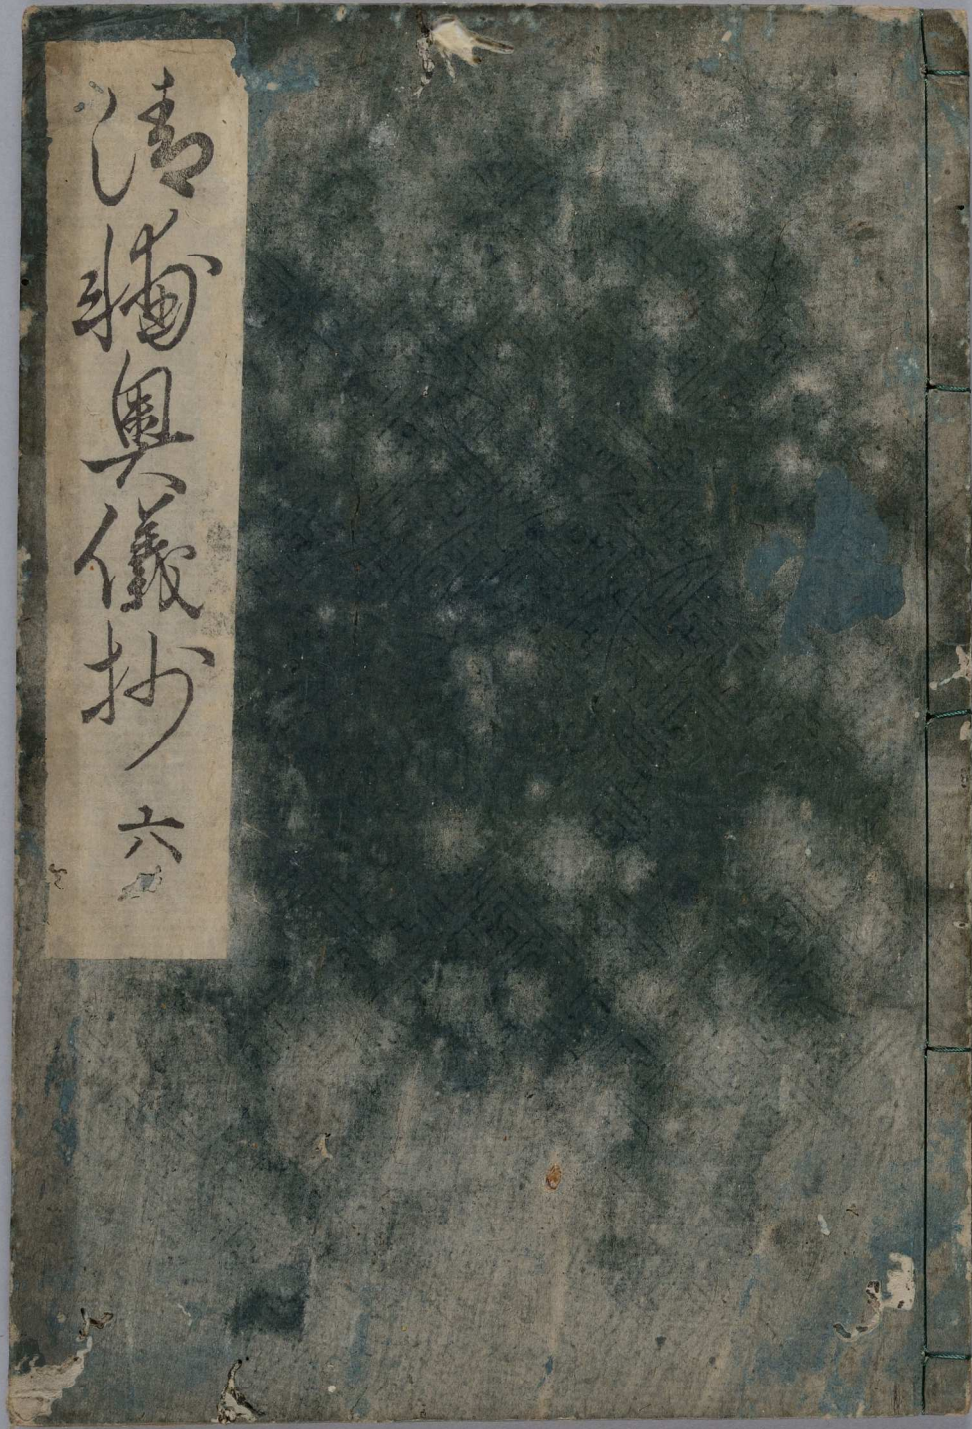 清輔奥儀抄 六